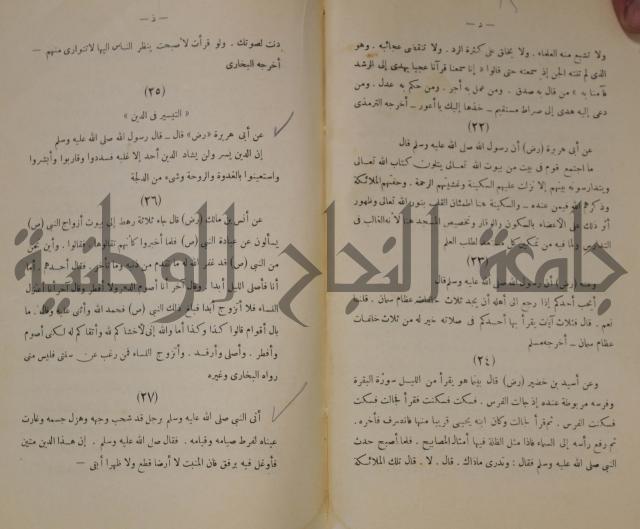 — د —
ولا تشبع منه العلماء . ولا يخلق على كثرة الرد . ولا تنقضى عجائبه . وهو
الذى لم تنته الجن إذ سمعته حتى قالوا « إنا سمعنا قرآنا عجبا يهدى إلى الرشد
فآمنا به » من قال به صدق . ومن عمل به أجر . ومن حكم به عدل . ومن
دعى إليه هدى إلى صراط مستقيم ــ خذها إليك يا أعور ــ أخرجه الترمذى
(٢٢)
عن أبى هريرة (رض) أن رسول الله صلى الله عليه وسلم قال
ما اجتمع قوم فى بيت من بيوت الله تعالى يتلون كتاب الله تعالى
ويتدارسونه بينهم إلا نزلت عليهم السكينة وغشيتهم الرحمة . وحفتهم الملائكة
وذكرهم الله فيمن عنده ــ والسكينة هنا اطمئنان القلب بنور الله تعالى وظهور
أثر ذلك على الأعضاء بالسكون والوقار وتخصيص المسجد هنا لأنه الغالب فى
التدارس ولما فيه من لطلب العلم
(٢٣)
وعنه (رض) أن رسول الله صلى الله عليه وسلم قال
أيحب أحدكم إذا رجع إلى أهله أن يجد ثلاث خلفات عظام سمان . قلنا
نعم . قال فثلاث آيات يقرأ بها أحدكم فى صلاته خير له من ثلاث خلفات
عظام سمان ــ أخرجه مسلم
(٢٤)
وعن أسيد بن حضير (رض) قال بينما هو يقرأ من الليل سورة البقرة
وفرسه مربوطة عنده إذ جالت الفرس . فسكت فسكنت فقرأ فجالت فسكت
فسكنت الفرس . ثم قرأ فجالت وكان ابنه يحيى قريبا منها فانصرف فأخره .
ثم رفع رأسه إلى السماء فاذا مثل الظلة فيها أمثال المصابيح . فلما أصبح حدث
النبى صلى الله عليه وسلم فقال : وتدرى ماذاك . قال . لا . قال تلك الملائكة
— ذ —
دنت لصوتك . ولو قرأت لأصبحت ينظر الناس اليها لا تتوارى منهم ــ
أخرجه البخارى
(٢٥)
« التيسير فى الدين »
عن أبى هريرة «رض» قال ــ قال رسول الله صلى الله عليه وسلم
إن الدين يسر ولن يشاد الدين أحد إلا غلبه فسددوا وقاربوا وأبشروا
واستعينوا بالغدوة والروحة وشىء من الدلجة
(٢٦)
عن أنس بن مالك (رض) قال جاء ثلاثة رهط إلى بيوت أزواج النبى (ص)
يسألون عن عبادة النبى (ص) فلما أخبروا كأنهم تقالوها . فقالوا . وأين نحن
من النبى (ص) قد غفر الله له ما تقدم من ذنبه وما تأخر . فقال أحدهم . أما
أنا فأصلى الليل أبدا . وقال آخر أنا أصوم الدهر ولا أفطر وقال آخر أنا أعتزل
النساء فلا أتزوج أبدا فبلغ ذلك النبى (ص) فحمد الله وأثنى عليه وقال . ما
بال أقوام قالوا كذا وكذا أما والله إنى لأخشاكم لله وأتقاكم له لكنى أصوم
وأفطر . وأصلى وأرقد . وأتزوج النساء فمن رغب عن سنتى فليس منى
رواه البخارى وغيره
(٢٧)
أتى النبى صلى الله عليه وسلم رجل قد شحب وجهه وهزل جسمه وغارت
عيناه لفرط صيامه وقيامه . فقال صلى الله عليه وسلم . إن هذا الدين متين
فأوغل فيه برفق فان المنبت لا أرضا قطع ولا ظهرا أبقى ــ
جامعة النجاح الوطنية